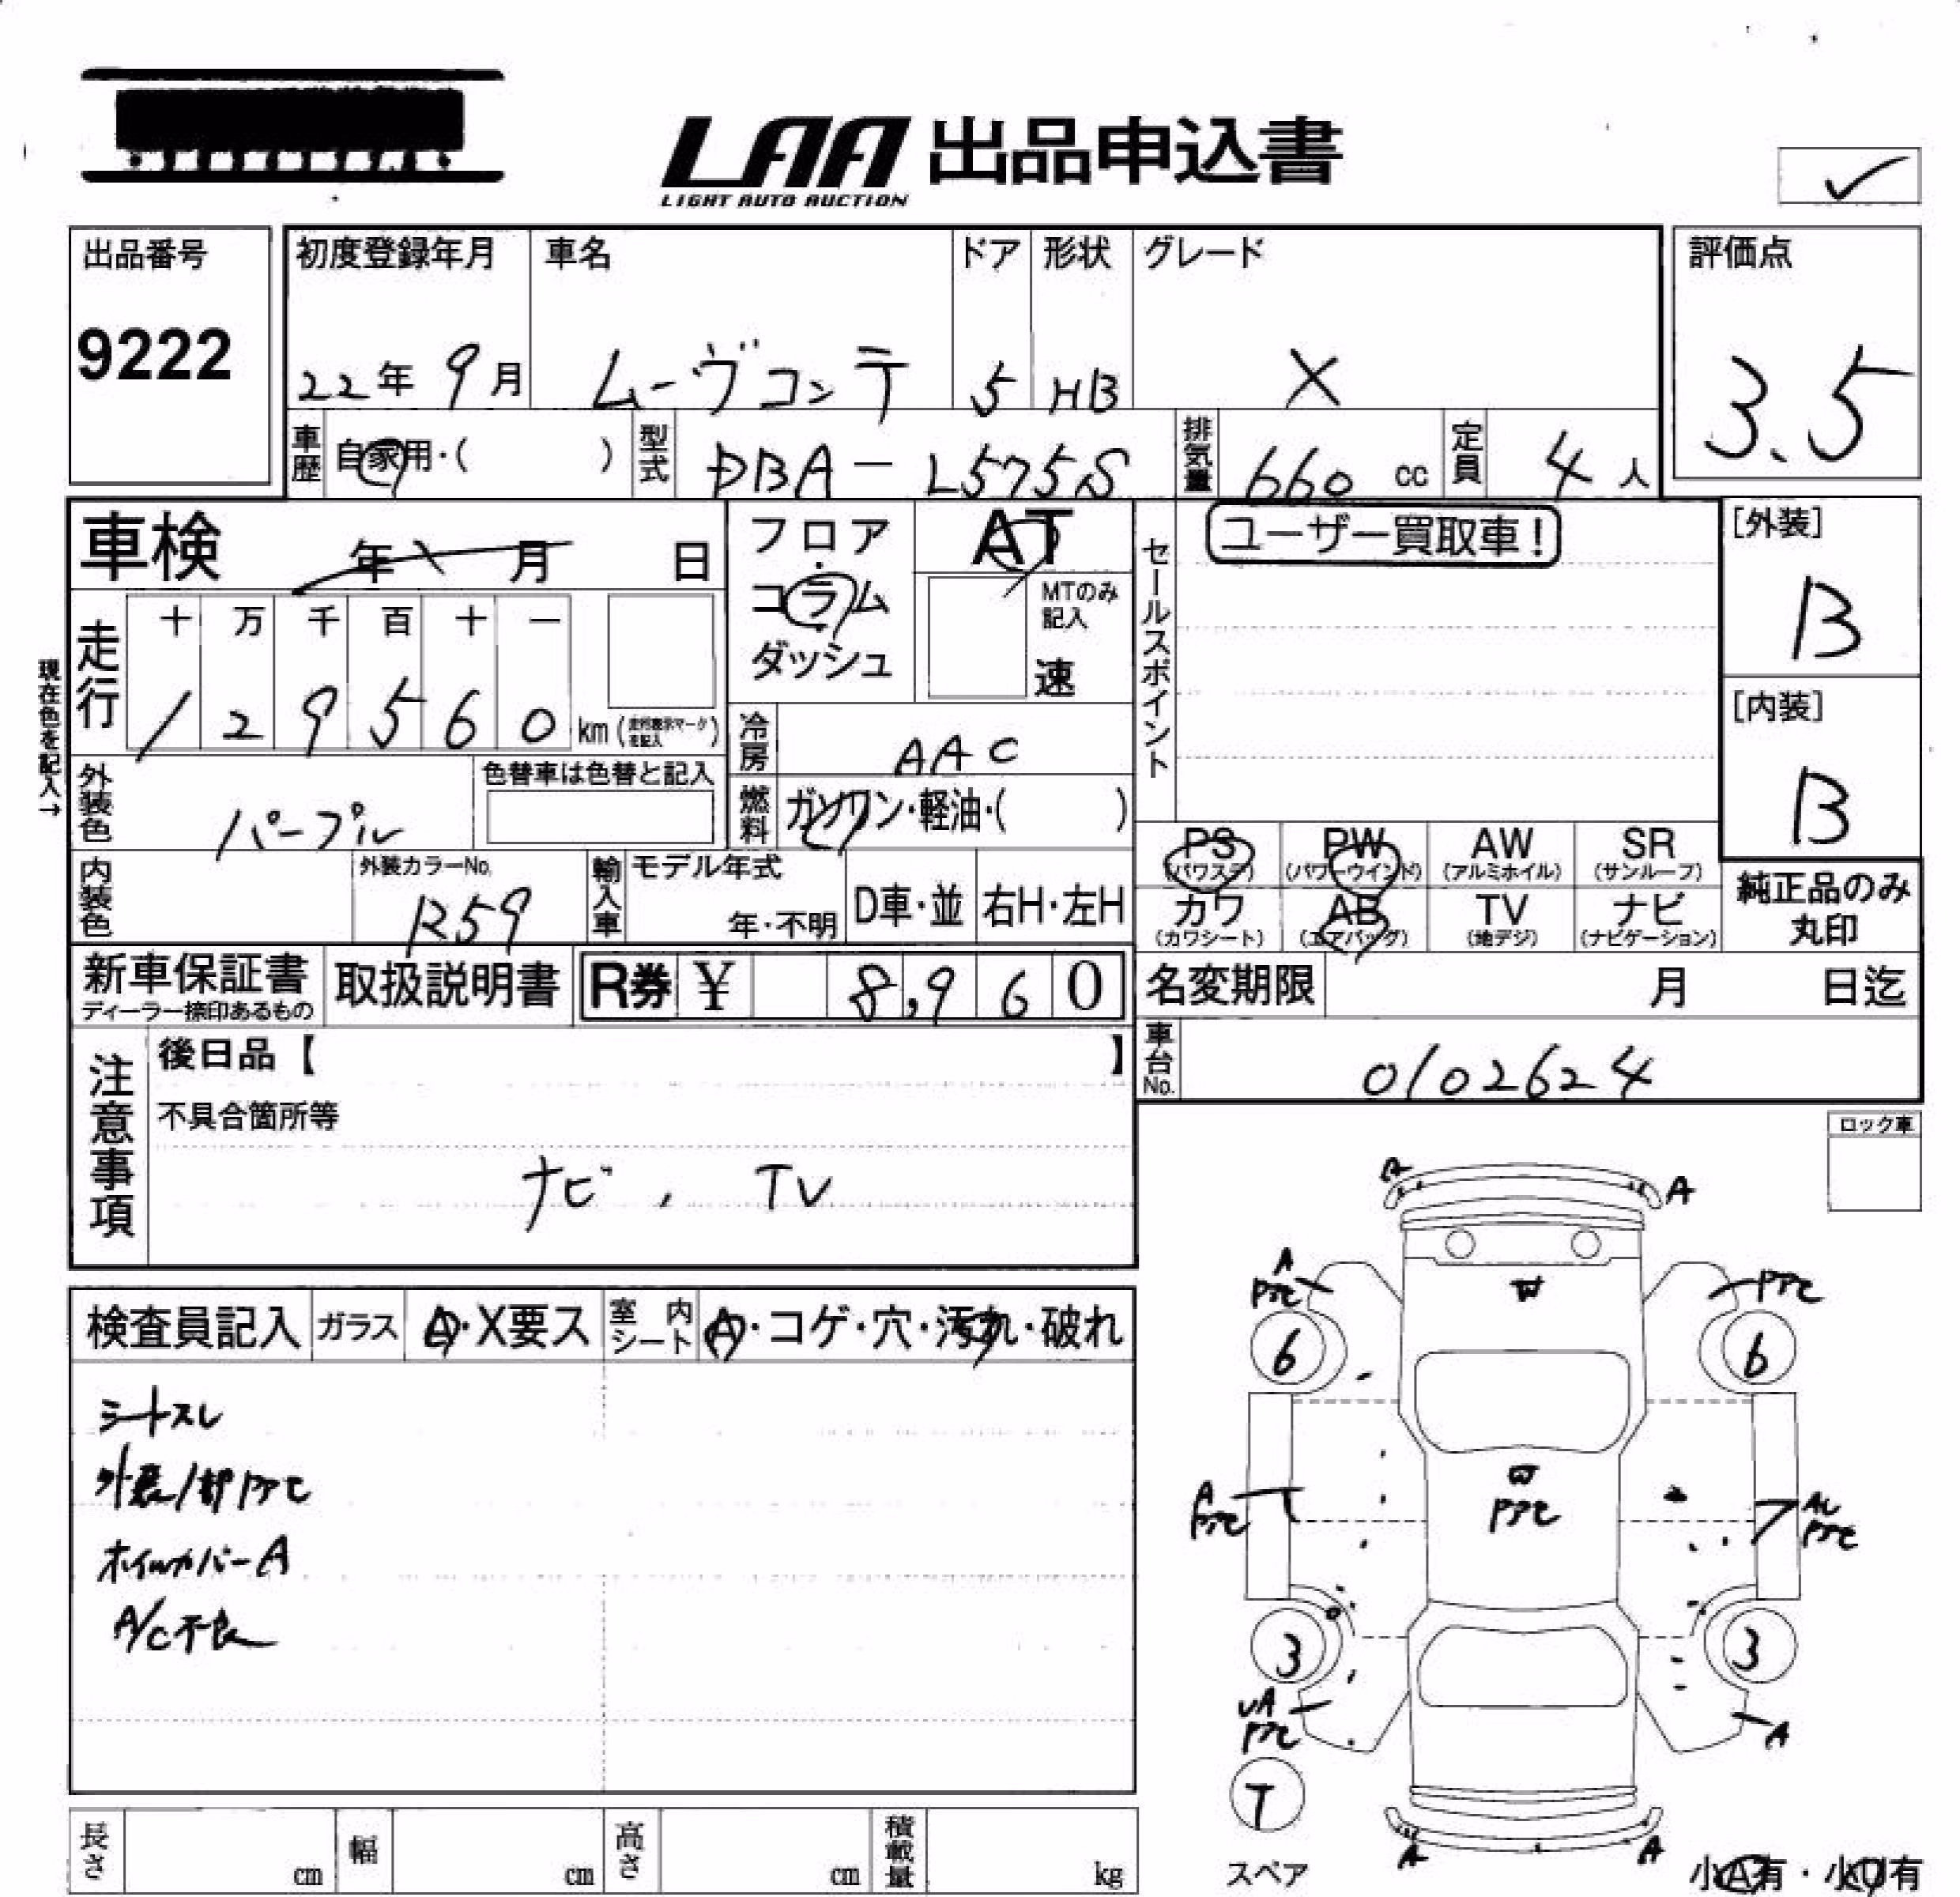 LAA 出品申込書
LIGHT AUTO AUCTION
出品番号
9222
初度登録年月
22年 9月
車名
ムーヴコンテ
ドア
5
形状
HB
グレード
X
評価点
3.5
車歴
自家用・( )
型式
DBA-L575S
排気量
660 cc
定員
4 人
車検
年 月 日
フロア・
コラム・
ダッシュ
AT
MTのみ
記入
速
セールスポイント
ユーザー買取車!
[外装]
B
[内装]
B
現在色を記入→
走行
十 万 千 百 十 一
1 2 9 5 6 0 km
冷房
AAC
外装色
パープル
色替車は色替と記入
燃料
ガソリン・軽油・( )
PS
(パワステ)
PW
(パワーウインド)
AW
(アルミホイル)
SR
(サンルーフ)
カワ
(カワシート)
AB
(エアバッグ)
TV
(地デジ)
ナビ
(ナビゲーション)
純正品のみ
丸印
内装色
外装カラーNo.
R59
輸入車
モデル年式
年・不明
D車・並
右H・左H
新車保証書
ディーラー捺印あるもの
取扱説明書
R券 ¥ 8,960
名変期限
月 日迄
車台No.
0102624
注意事項
後日品【 】
不具合箇所等
ナビ, TV
ロック車
検査員記入
ガラス
A・X要ス
室内シート
A・コゲ・穴・汚れ・破れ
シートスレ
外装/部PPC
ホイルカバーA
A/C不良
A
A
A
PPC
PPC
W
6
6
W
PPC
A
PPC
AU
PPC
3
3
UA
PPC
A
T
A
A
スペア
小A有・小U有
長さ cm
幅 cm
高さ cm
積載量 kg